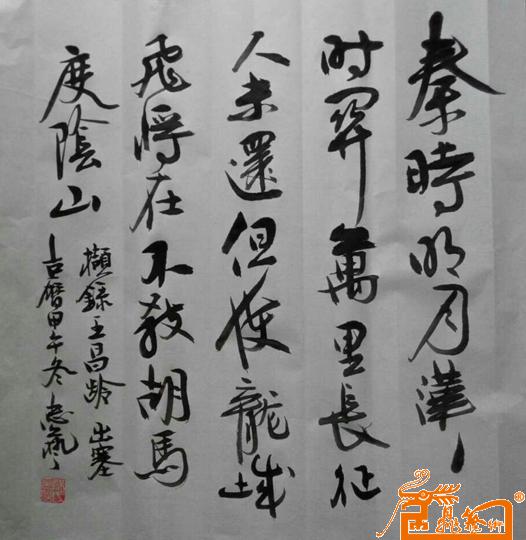 秦時明月漢
时關萬里長征
人未還但使龍城
飛將在不教胡馬
度陰山
擷錄王昌龄出塞
古曆甲午冬